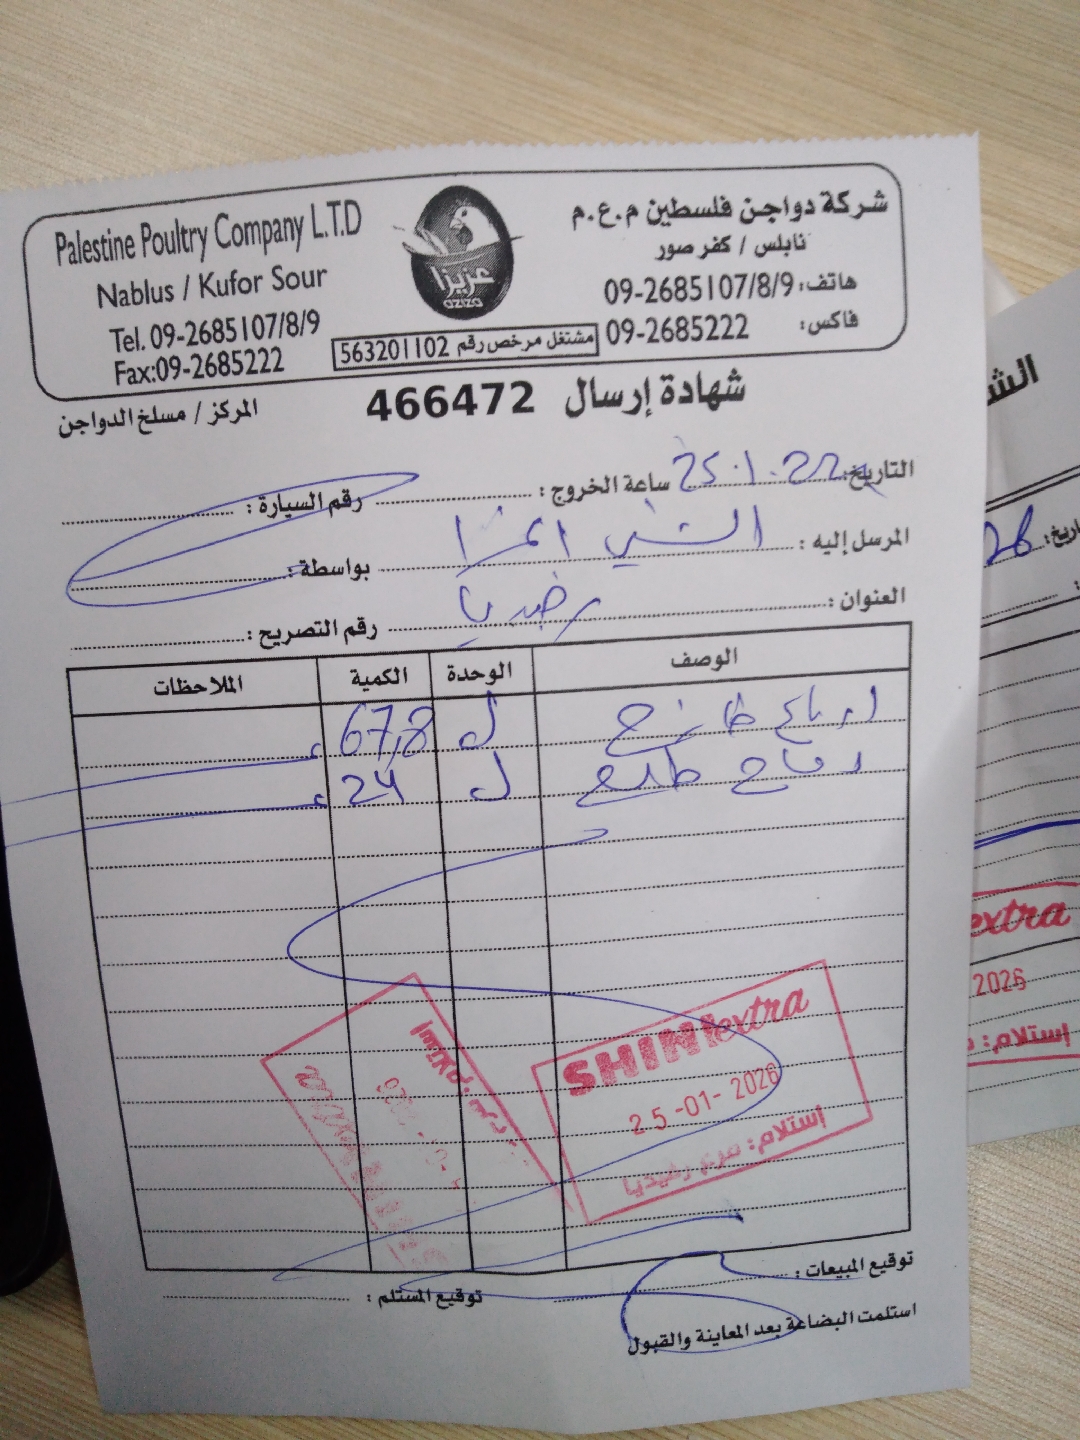 Palestine Poultry Company L.T.D
Nablus / Kufor Sour
Tel. 09-2685107/8/9
Fax:09-2685222
عزيزا
aziza
شركة دواجن فلسطين م.ع.م
نابلس / كفر صور
هاتف: 09-2685107/8/9
فاكس: 09-2685222
مشتغل مرخص رقم 563201102
شهادة إرسال 466472
المركز / مسلخ الدواجن
التاريخ: 25.1.22 ساعة الخروج : رقم السيارة :
المرسل إليه : الشني بواسطة :
العنوان : رقم التصريح :
الوصف الوحدة الكمية الملاحظات
طازج ك 67,8
ك 24
SHINI extra
25-01-2026
إستلام: مرير رفيديا
توقيع المبيعات : توقيع المستلم :
استلمت البضاعة بعد المعاينة والقبول
الش
26
extra
2026
إستلام: